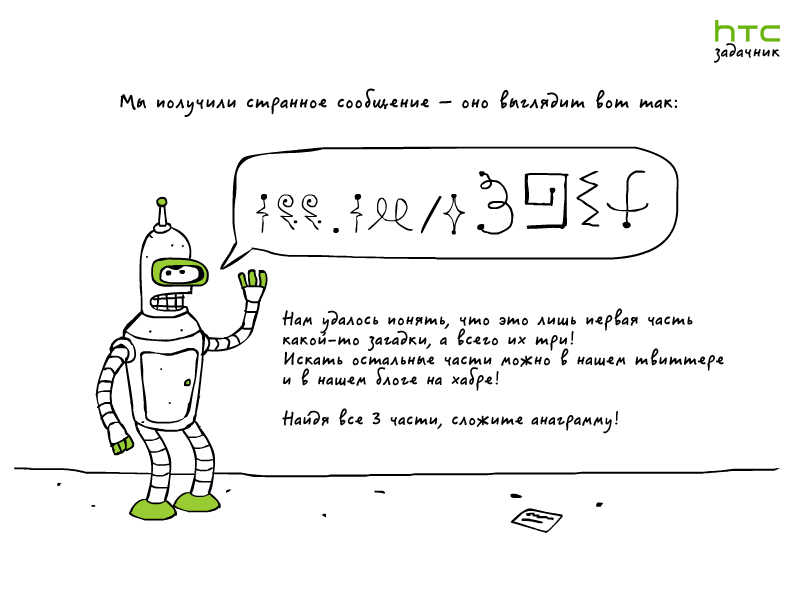 hтc
задачник
Мы получили странное сообщение – оно выглядит вот так:
Нам удалось понять, что это лишь первая часть
какой-то загадки, а всего их три!
Искать остальные части можно в нашем твиттере
и в нашем блоге на хабре!
Найдя все 3 части, сложите анаграмму!